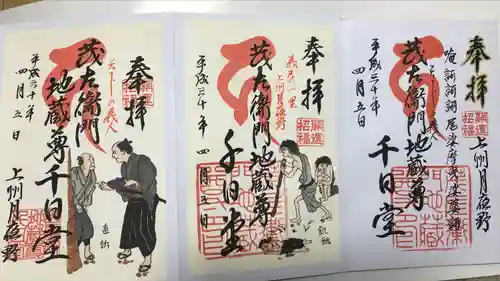 奉拝
開運
招福
天下の義人
茂左衛門
地蔵尊千日堂
平成三十年
四月五日
上州月夜野
直訴
奉拝
開運
招福
義民の里
上州月夜野
茂左衛門地蔵尊
千日堂
平成三十年
四月五日
飢餓
奉拝
開運
招福
天下の義人
茂左衛門地蔵尊
千日堂
平成三十年
四月五日
上州月夜野